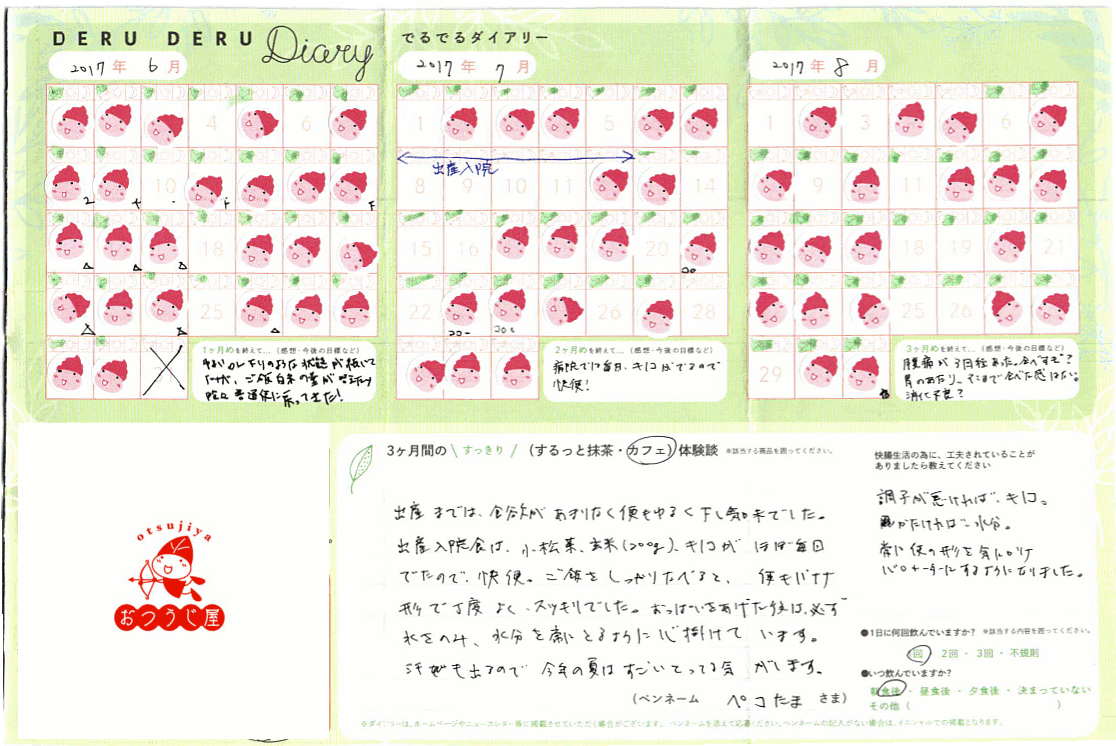 DERU DERU Diary でるでるダイアリー
2017年 6月
2017年 7月
2017年 8月
4
6
10
18
25
1ヶ月めを終えて… (感想・今後の目標など)
1
5
出産入院
8 9 10 11 14
15 16 20
22 26 28
コロー コロコ
2ヶ月めを終えて… (感想・今後の目標など)
病院では毎日、キノコがでるので
快便!
3
6
9
18 19 21
25 26
29
3ヶ月めを終えて… (感想・今後の目標など)
腹痛が3日程あった。食べすぎ?
胃のあたり、そこまで食べた感はない。
消化不良?
otsujiya
おつうじ屋
3ヶ月間の \ すっきり / (するっと抹茶・カフェ) 体験談 ※該当する商品を囲ってください。
出産までは、食欲があまりなく便もゆるく下し気味でした。
出産入院食は、小松菜、玄米(200g)、キノコが ほぼ毎日
でたので、快便。ご飯をしっかりたべると、便もバナナ
形で丁度よく、スッキリでした。おっぱいをあげた後は、必ず
水をのみ、水分を常にとるように心掛けています。
汗も出るので 今年の夏はすごいとってる気がします。
(ペンネーム ペコたま さま)
快腸生活の為に、工夫されていることが
ありましたら教えてください
調子が悪ければ、キノコ。
かたければ 水分。
常に便の形を気にかけ
バロメーターにするようになりました。
●1日に何回飲んでいますか? ※該当する内容を囲ってください。
1回・2回・3回・不規則
●いつ飲んでいますか?
朝食後・昼食後・夕食後・決まっていない
その他 ( )
※ダイアリーは、ホームページやニュースレター等に掲載させていただく場合がございます。ペンネームを添えて応募ください。ペンネームの記入がない場合は、イニシャルでの掲載となります。